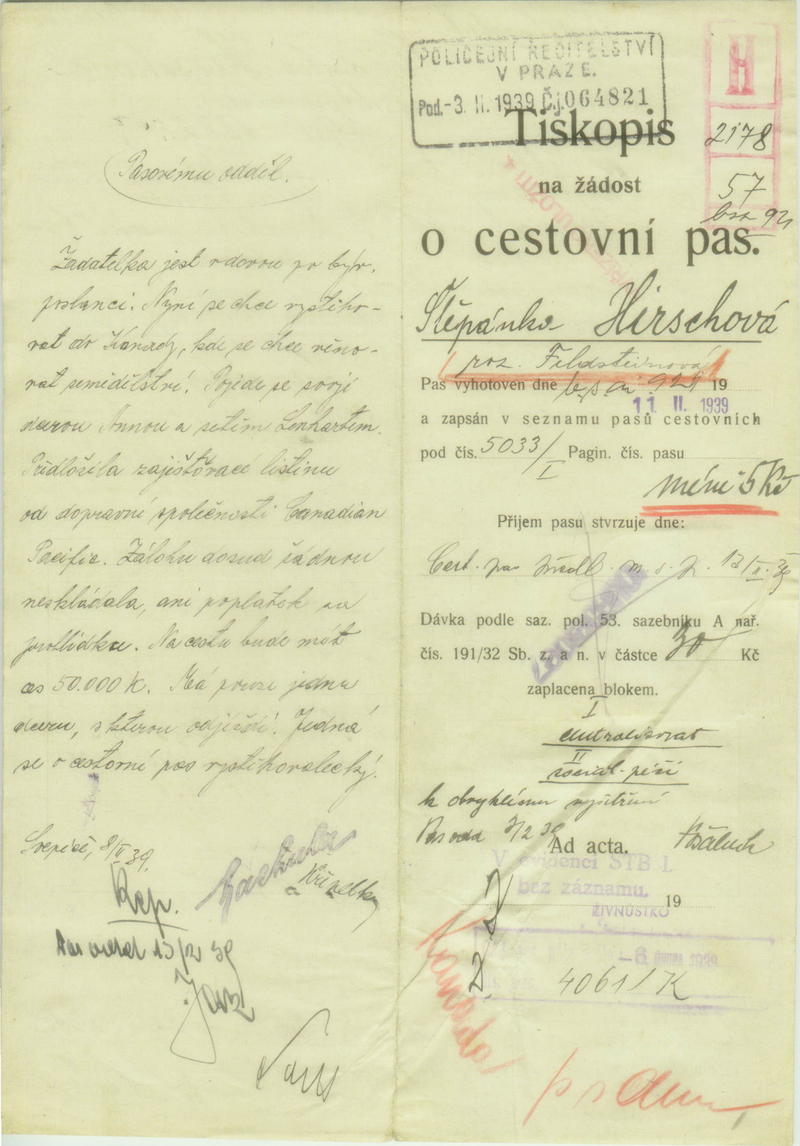 Pasovému odděl.
Žadatelka jest vdovou po býv.
poslanci. Nyní se chce vystěho-
vat do Kanady, kde se chce věno-
vat zemědělství. Pojede se svojí
dcerou Annou a zetěm Lenhartem.
Předložila zajišťovací listinu
od dopravní společnosti Canadian
Pacific. Zálohu dosud žádnou
neskládala, ani poplatek za
prohlídku. Na cestu bude mít
as 50.000 K. Má pouze jednu
dceru, s kterou odjíždí. Jedná
se o cestovní pas vystěhovalecký.
8/II 39.
Rep.
13/2 39
POLICEJNÍ ŘEDITELSTVÍ
V PRAZE.
Pod. -3. II. 1939 Čj. 064821
H
Tiskopis
2178
na žádost
57
o cestovní pas.
Štěpánka Hirschová
roz. Feldsteinová
Pas vyhotoven dne 19
11 II. 1939
a zapsán v seznamu pasů cestovních
pod čís. 5033/I Pagin. čís. pasu
méně 5 Kč
Příjem pasu stvrzuje dne:
Cest. pas
Dávka podle saz. pol. 53. sazebníku A nař.
čís. 191/32 Sb. z. a n. v částce 30 Kč
zaplacena blokem.
I
II
k obvyklému vyšetření
3/2 39
Ad acta.
V evidenci STB I.
bez záznamu.
19
ŽIVNŮSTKO
-6 1939
4061/K
Kanada